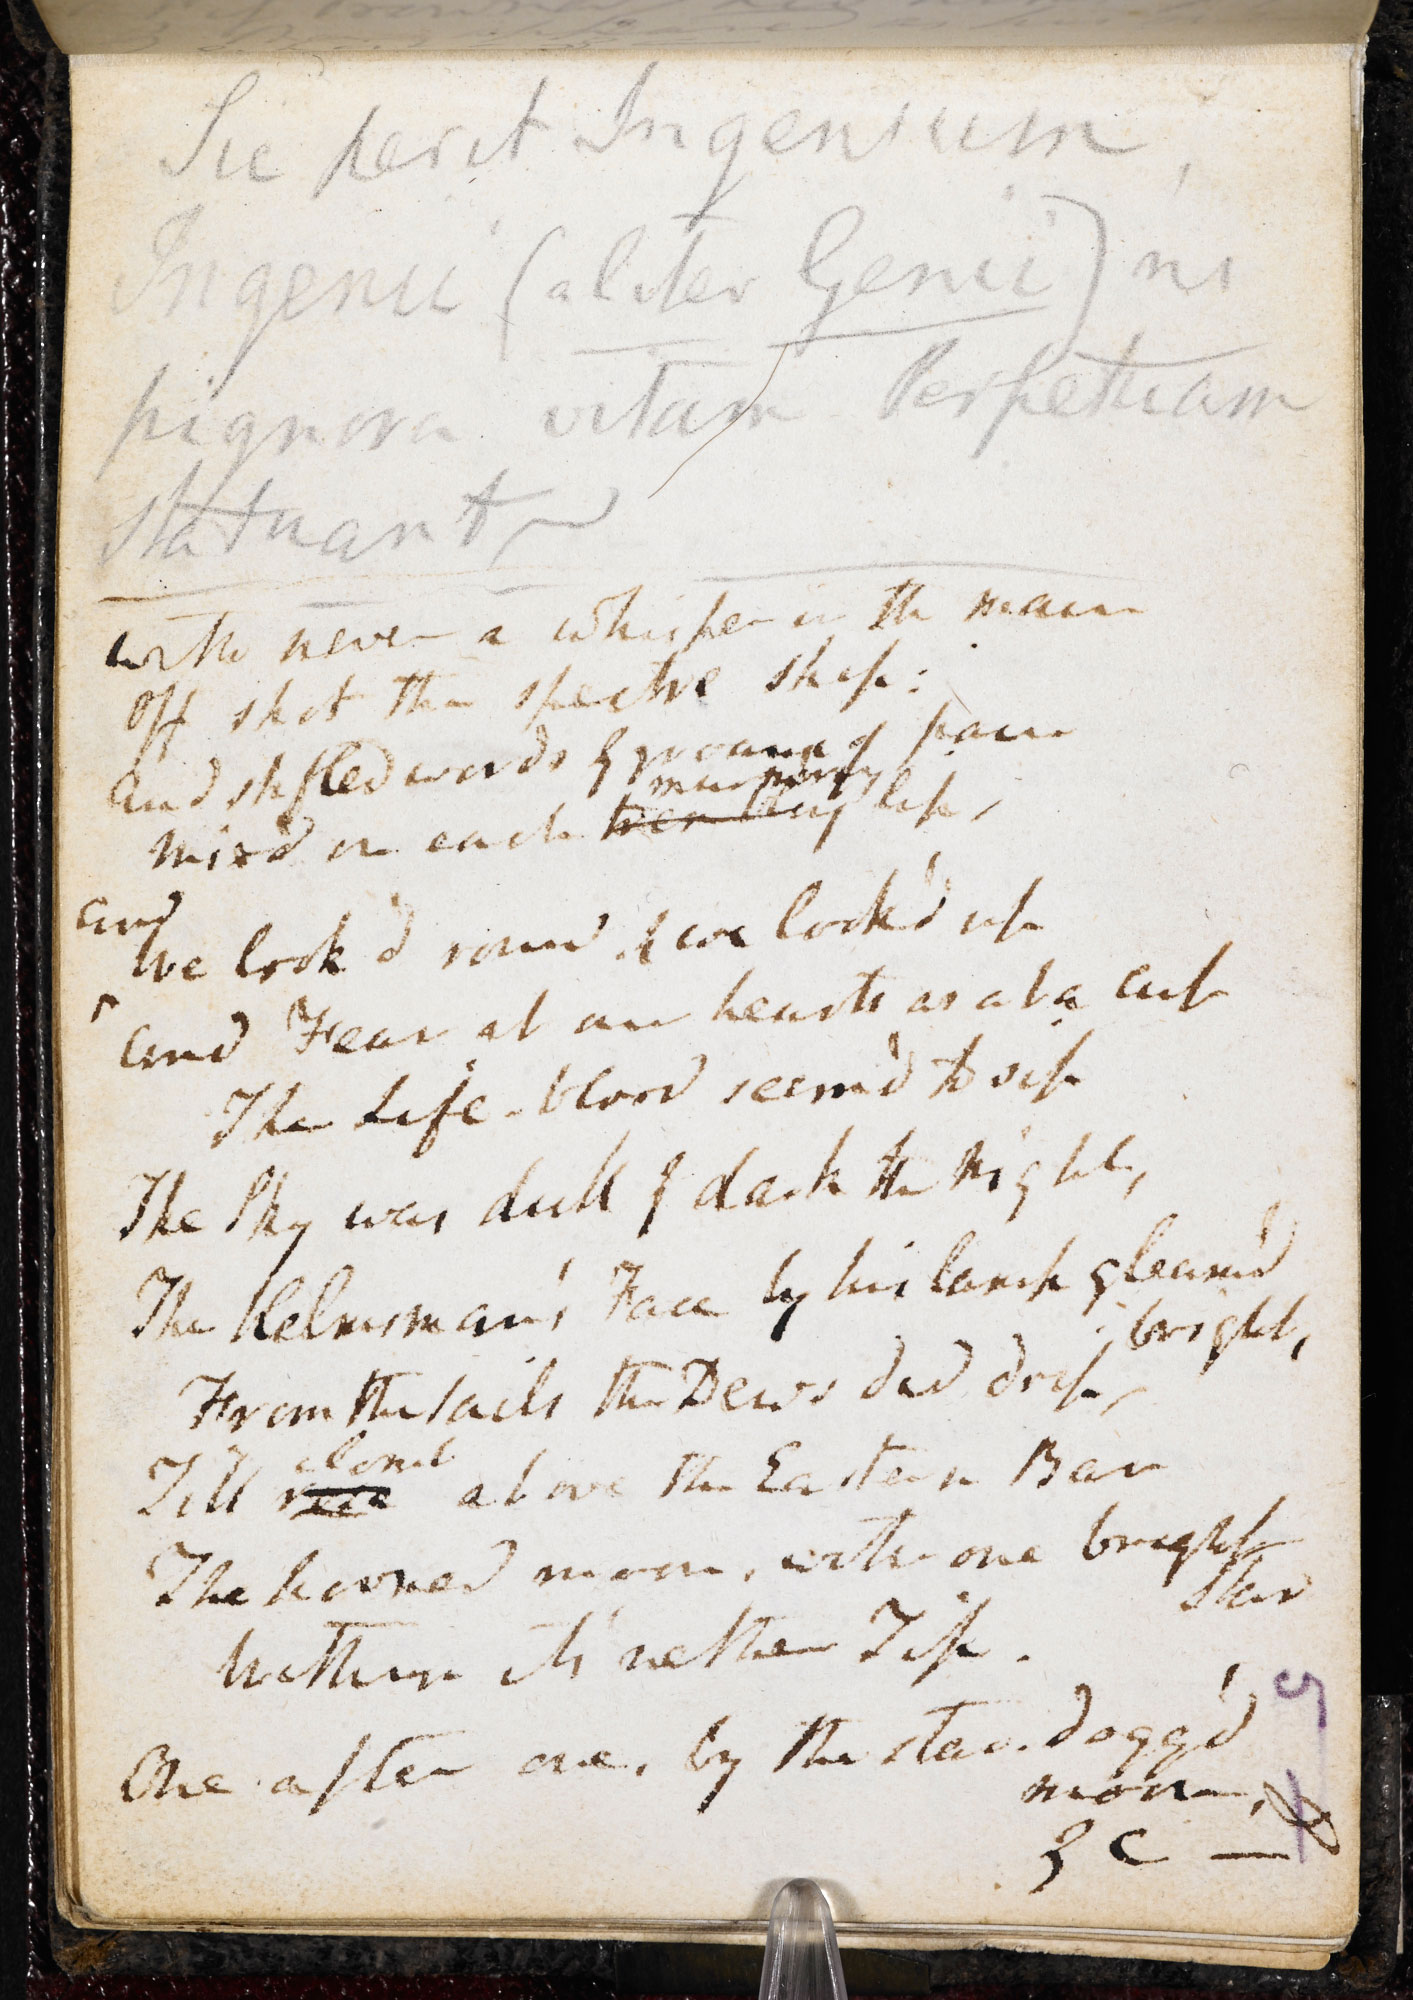 Sic perit Ingenium,
Ingenii (aliter Genii) ni
pignora vitam Perpetuam
statuant
with never a whisper in the main
Off shot the spectre ship:
And stifled words & groans of pain
murmuring
Mix'd on each trembling lip,
And
We look'd round & we look'd up
And Fear at our hearts as at a Cup
The Life-blood seem'd to sip
The Sky was dull & dark the Night,
The Helmsman's Face by his lamp gleam'd
bright,
From the Sails the Dews did drip,
clomb
Till rose above the Eastern Bar
The horned moon, with one bright
Star
Within its nether Tip.
One after one, by the star-dogg'd
moon,
&c —